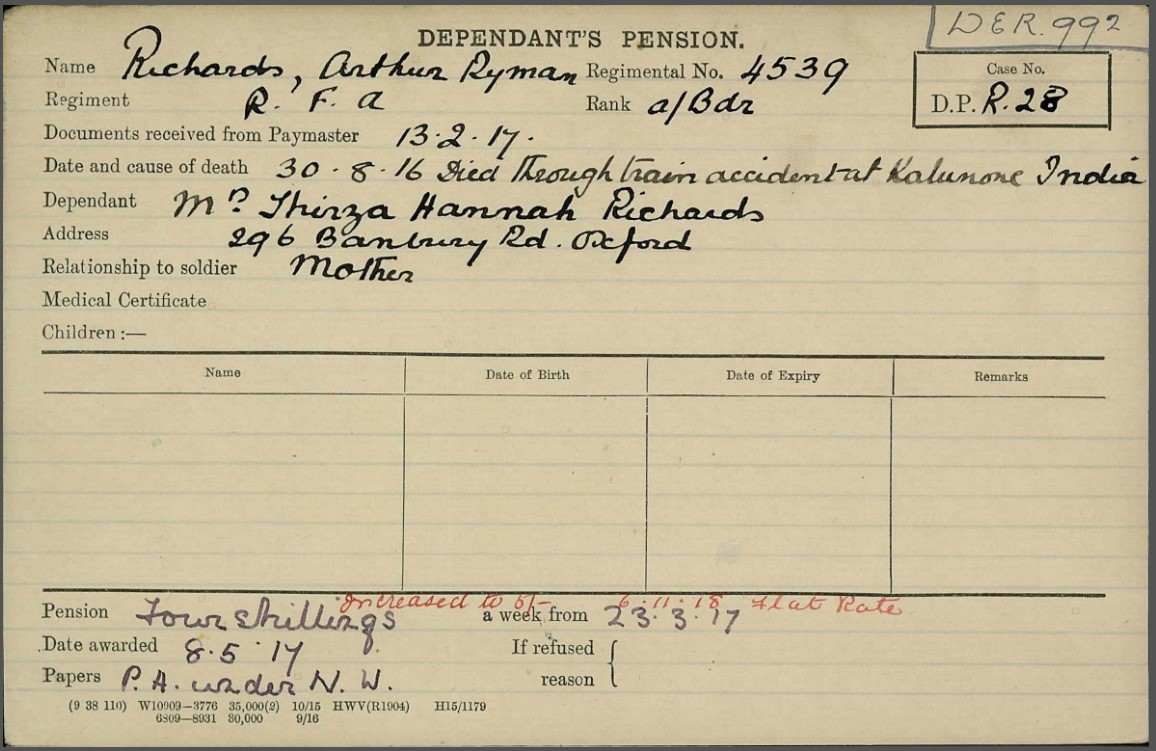 DER. 992
DEPENDANT'S PENSION.
Name Richards, Arthur Ryman Regimental No. 4539
Case No.
D.P. R.28
Regiment R. F. A Rank a/Bdr
Documents received from Paymaster 13.2.17.
Date and cause of death 30.8.16 Died through train accident at Kalunone India
Dependant Mrs Thirza Hannah Richards
Address 296 Banbury Rd. Oxford
Relationship to soldier Mother
Medical Certificate
Children :—
Name Date of Birth Date of Expiry Remarks
increased to 5/- 6.11.18 Flat Rate
Pension Four shillings a week from 23.3.17
Date awarded 8.5.17 If refused
Papers P.A. under N.W. reason
(9 38 110) W10909—3776 35,000(2) 10/15 HWV(R1904) H15/1179
6809—8931 30,000 9/16